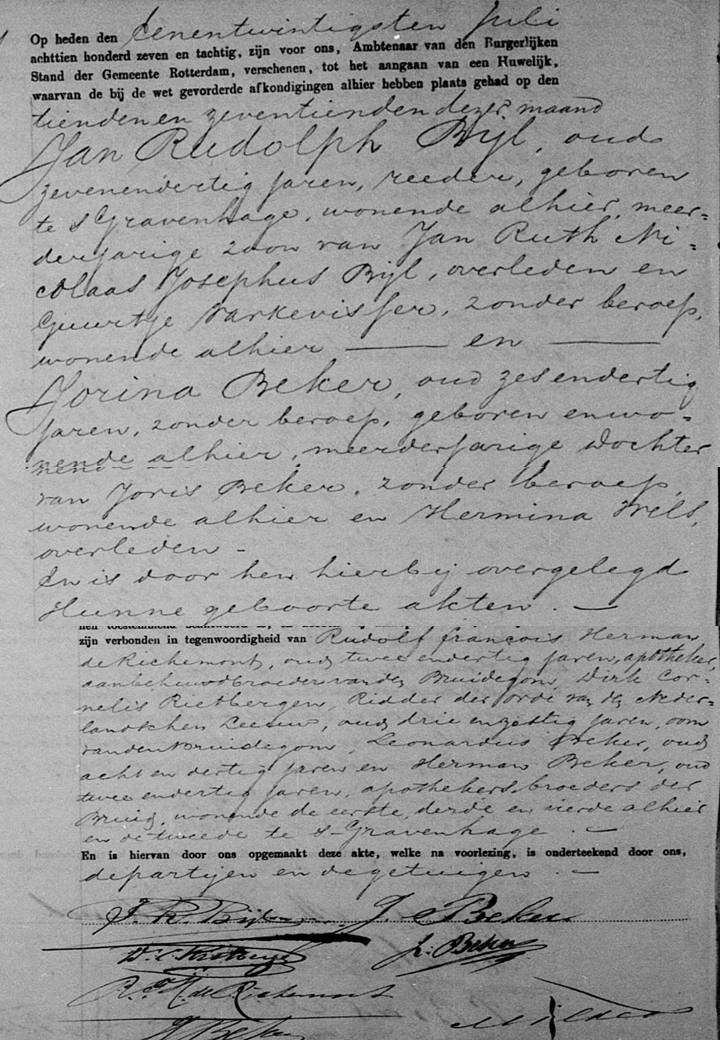 Op heden den Eenentwintigsten Juli
achttien honderd zeven en tachtig, zijn voor ons, Ambtenaar van den Burgerlijken
Stand der Gemeente Rotterdam, verschenen, tot het aangaan van een Huwelijk,
waarvan de bij de wet gevorderde afkondigingen alhier hebben plaats gehad op den
tienden en zeventienden dezer maand
Jan Rudolph Bijl, oud
zevenendertig jaren, reeder, geboren
te s Gravenhage, wonende alhier, meer-
derjarige zoon van Jan Ruth Ni-
colaas Josephus Bijl, overleden en
Geertje Varkevisser, zonder beroep,
wonende alhier — en —
Jorina Beker, oud zesendertig
jaren, zonder beroep, geboren en wo-
nende alhier, meerderjarige dochter
van Joris Beker, zonder beroep,
wonende alhier en Hermina Wels,
overleden -
En is door hen hierbij overgelegd
Hunne geboorte akten. —
zijn verbonden in tegenwoordigheid van Rudolf François Herman
de Richemont, oud twee endertig jaren, apotheker,
aanbehuwdbroeder van den Bruidegom, Dirk Cor-
nelis Rietbergen, Ridder der orde van den Neder-
landschen Leeuw, oud drie en zestig jaren, oom
van den bruidegom, Leonardus Beker, oud
acht en dertig jaren en Herman Beker, oud
twee endertig jaren, apothekers, broeders der
Bruid, wonende de eerste, derde en vierde alhier
en de tweede te s Gravenhage. —
En is hiervan door ons opgemaakt deze akte, welke na voorlezing, is onderteekend door ons,
de partijen en de getuigen. —
J. R. Bijl J. Beker
D. C. Rietbergen L. Beker
R. F. H. de Richemont
H Beker